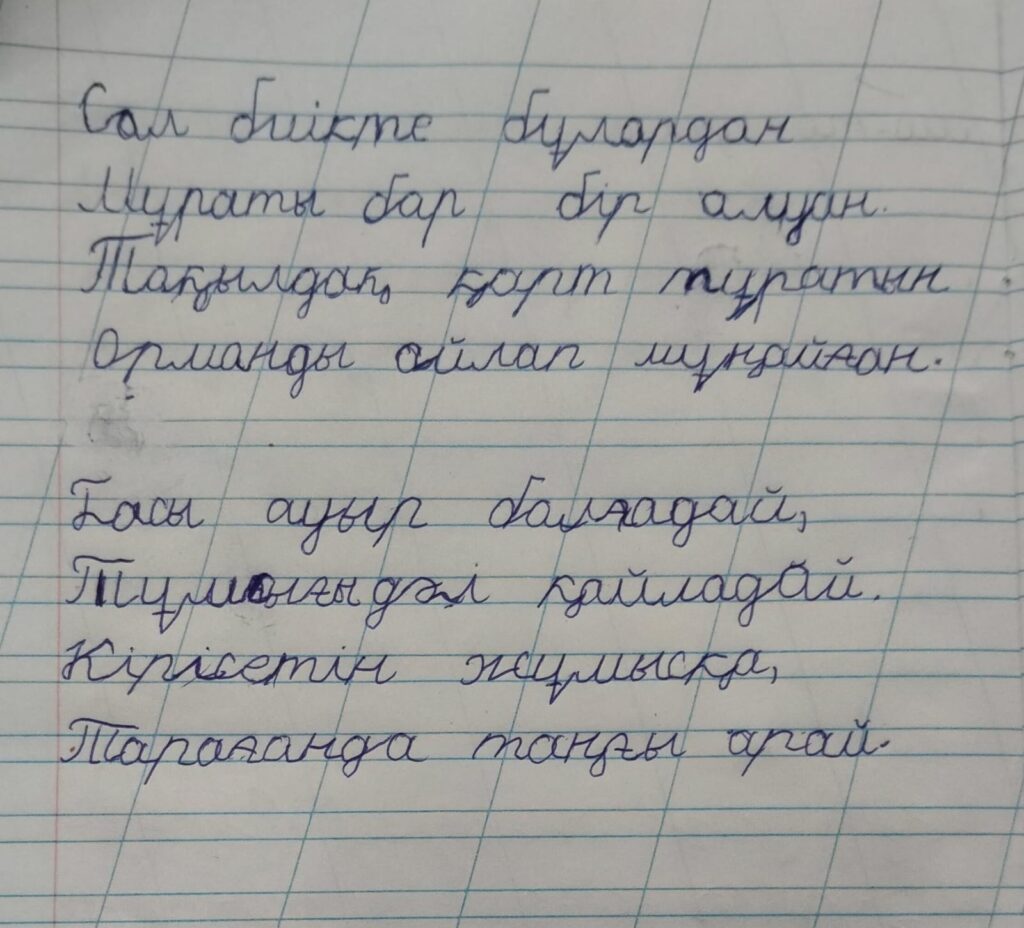 Сәл биікте бұлардан
Мұраты бар бір алуан.
Тақылдақ қарт тұратын
Орманды ойлап мұңайған.
Басы ауыр балғадай,
Тұмсығы дәл қайладай.
Кірісетін жұмысқа,
Тарағанда таңғы арай.